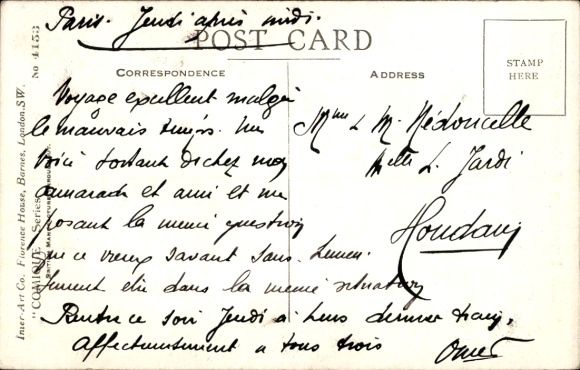 Paris. Jeudi après midi.
POST CARD
CORRESPONDENCE
ADDRESS
STAMP
HERE
Voyage excellent malgré
le mauvais temps. Me
voici sortant de chez mon
camarade et ami et me
posant la meme question
que ce vieux savant sans
etre dans la meme situation
Rentre ce soir Jeudi a dernier train.
Affectueusement a tous trois
Omer
Mme & M. Nédoncelle
L. Jardi
Houdain
Inter-Art Co. Florence House, Barnes, London, S.W.
"COMIQUE" Series No 4153
BRITISH MANUFACTURE THROUGHOUT